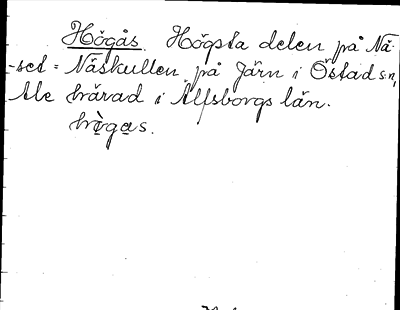 Högås. Högsta delen på Nä-
-set = Näskullen på Järn i Östad s:n,
Ale härad i Älfsborgs län.